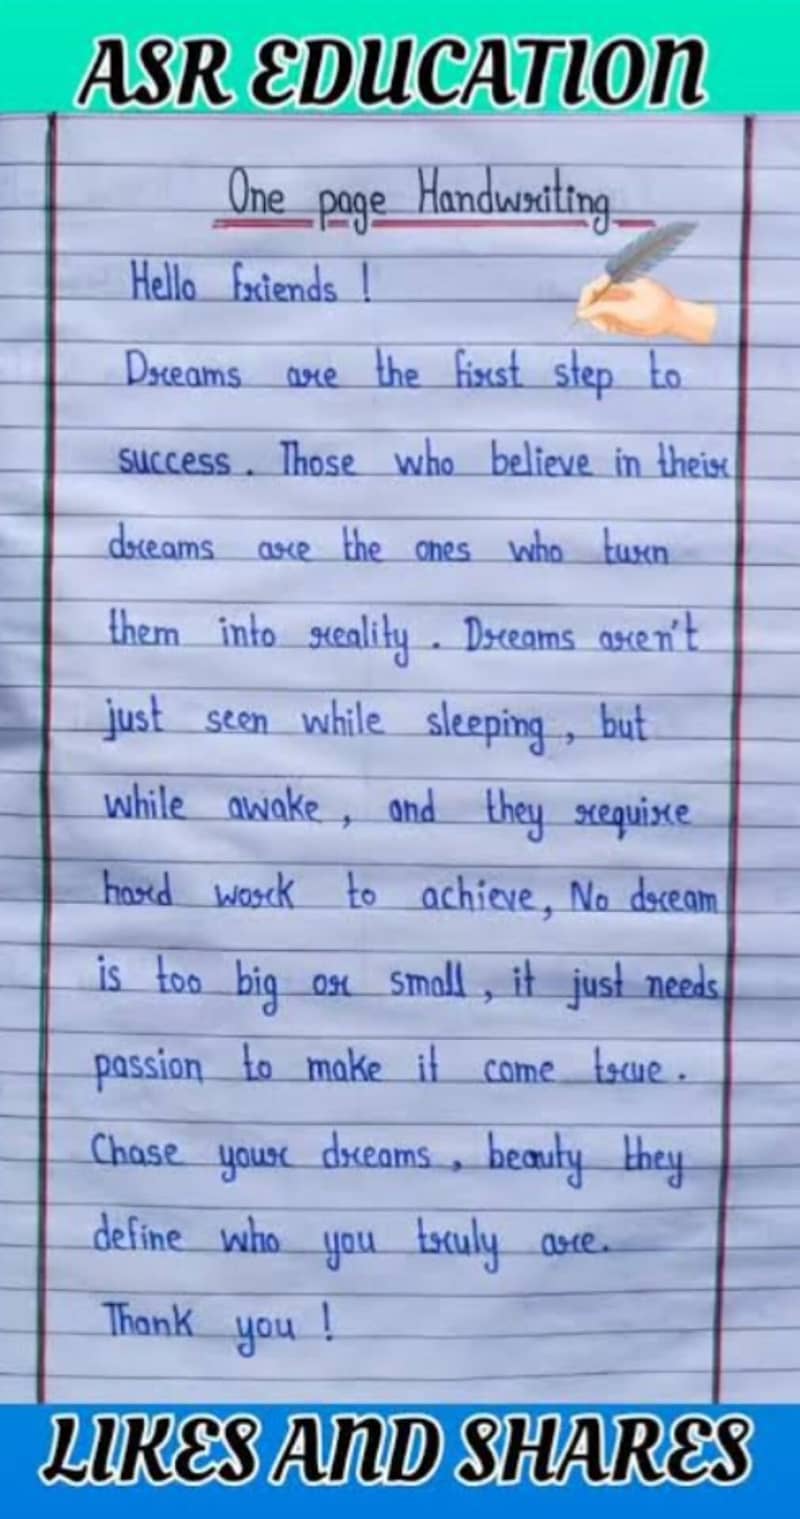 ASR EDUCATION
One page Handwriting
Hello friends !
Dreams are the first step to
success. Those who believe in their
dreams are the ones who turn
them into reality. Dreams aren't
just seen while sleeping, but
while awake, and they require
hard work to achieve, No dream
is too big or small, it just needs
passion to make it come true.
Chase your dreams, beauty they
define who you truly are.
Thank you !
LIKES AND SHARES